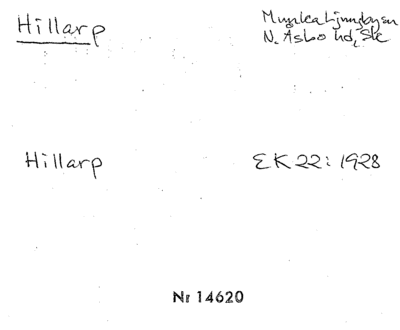 Hillarp
Munka Ljungbysn
N. Åsbo hd, Sk
Hillarp
EK 22: 1928
Nr 14620